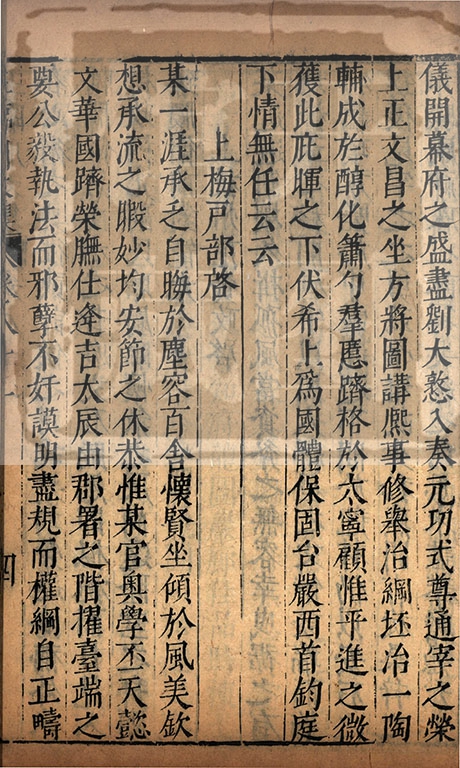 儀開幕府之盛盡劉大憝入奏元功式尊通宰之榮
上正文昌之坐方將圖講熈事修舉治綱坯冶一陶
輔成於醇化簫勺羣慝躋格於太寧顧惟平進之微
獲此庇暉之下伏希上爲國體保固台嚴西首鈞庭
下情無任云云
上梅戸部啓
某一涯承乏自晦於塵容百舍懷賢坐傾於風美欽
想承流之暇妙均安節之休恭惟某官奧學丕天懿
文華國躋榮膴仕逢吉太辰由郡署之階擢臺端之
要公毅執法而邪孽不奸謨明盡規而權綱自正疇
四